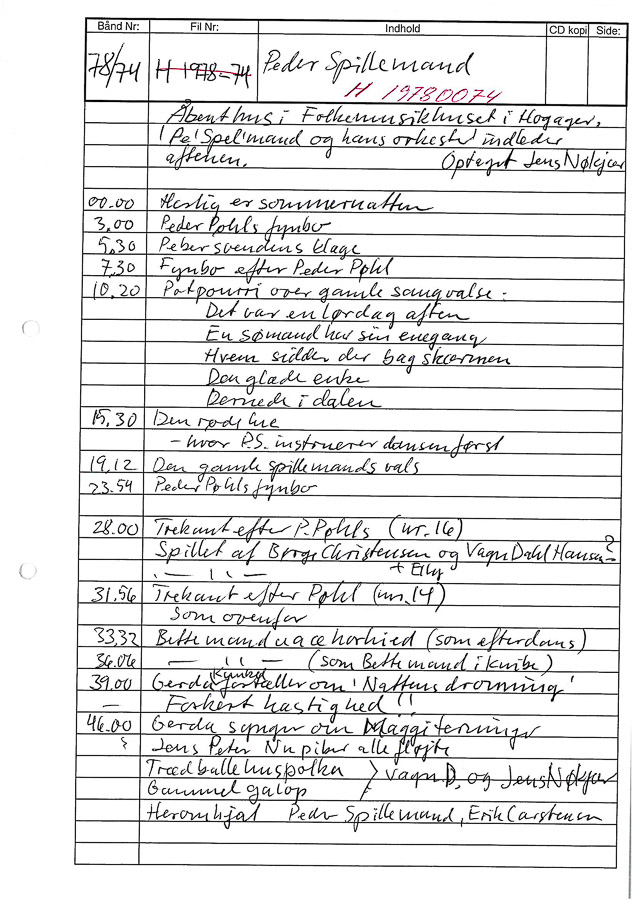 Bånd Nr: Fil Nr: Indhold CD kopi Side:
78/74 H 1978-74 Peder Spillemand
H 19780074
Åbent hus i Folkemusikhuset i Hogager.
'Pe' Spel'mand og hans orkester' indleder
aftenen. Optaget Jens Nøkjær
00.00 Herlig er sommernatten
3.00 Peder Pøhls fynbo
5.30 Pebersvendens klage
7.30 Fynbo efter Peder Pøhl
10.20 Potpourri over gamle sangvalse:
Det var en lørdag aften
En sømand har sin enegang
Hvem sidder der bag skærmen
Den glade enke
Dernede i dalen
15.30 Den røde lue
- hvor P.S. instruerer dansen først
19.12 Den gamle spillemands vals
23.54 Peder Pøhls fynbo
28.00 Trekant efter P. Pøhls (nr. 16)
Spillet af Børge Christensen og Vagn Dahl Hansen ?
- " - + Elly
31.56 Trekant efter Pøhl (nr. 14)
Som ovenfor
33.32 Bette mand (som efterdans)
36.06 — " — (som Bette mand i knibe)
39.00 Gerda fortæller om 'Nattens dronning'
— Forkert hastighed !!
46.00 Gerda synger om Maggiterninger
Jens Peter Nu piber alle fløjte
Trædballehuspolka } Vagn D. og Jens Nøkjær
Gammel galop
Heromkjal Peder Spillemand, Erik Carstensen